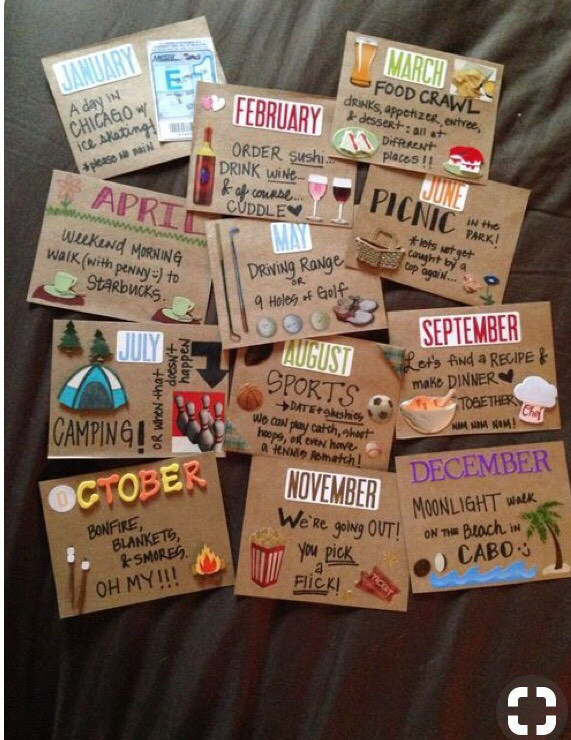 JANUARY
A day in
CHICAGO w/
ice skating!
*please no rain
E
FEBRUARY
ORDER sushi...
DRINK wine...
& of course...
CUDDLE
MARCH
FOOD CRAWL
drinks, appetizer, entree,
& dessert: all at
Different
places!!
APRIL
Weekend MORNING
walk (with penny :) to
STARBUCKS.
MAY
DRIVING RANGE
OR
9 Holes of Golf
JUNE
PICNIC IN THE
PARK!
*lets not get
caught by a
cop again...
JULY
CAMPING!
OR when that
doesn't
happen
AUGUST
SPORTS
DATE + slushies
We can play catch, shoot
hoops, or even have
a tennis rematch!
SEPTEMBER
Let's find a RECIPE &
make DINNER
TOGETHER
NOM NOM NOM!
Chef
OCTOBER
BONFIRE,
BLANKETS,
& SMORES.
OH MY!!!
NOVEMBER
We're going OUT!
you pick
a
FLICK!
TICKET
DECEMBER
MOONLIGHT walk
ON THE Beach in
CABO :)